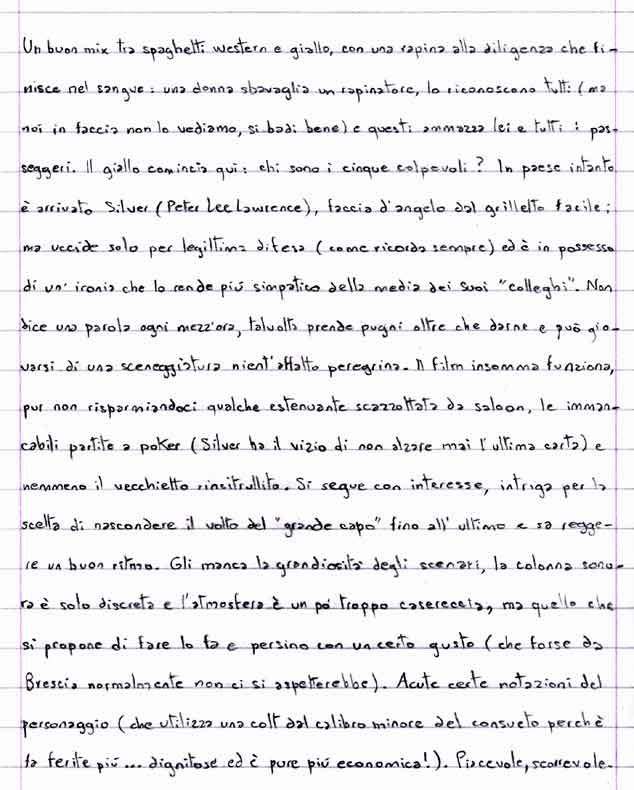 Un buon mix tra spaghetti western e giallo, con una rapina alla diligenza che fi-
nisce nel sangue: una donna sbavaglia un rapinatore, lo riconoscono tutti (ma
noi in faccia non lo vediamo, si badi bene) e questi ammazza lei e tutti i pas-
seggeri. Il giallo comincia qui: chi sono i cinque colpevoli? In paese intanto
è arrivato Silver (Peter Lee Lawrence), faccia d'angelo dal grilletto facile;
ma uccide solo per legittima difesa (come ricorda sempre) ed è in possesso
di un'ironia che lo rende più simpatico della media dei suoi "colleghi". Non
dice una parola ogni mezz'ora, talvolta prende pugni oltre che darne e può gio-
varsi di una sceneggiatura nient'affatto peregrina. Il film insomma funziona,
pur non risparmiandoci qualche estenuante scazzottata da saloon, le imman-
cabili partite a poker (Silver ha il vizio di non alzare mai l'ultima carta) e
nemmeno il vecchietto rincitrullito. Si segue con interesse, intriga per la
scelta di nascondere il volto del "grande capo" fino all'ultimo e sa regge-
re un buon ritmo. Gli manca la grandiosità degli scenari, la colonna sono-
ra è solo discreta e l'atmosfera è un po' troppo casereccia, ma quello che
si propone di fare lo fa e persino con un certo gusto (che forse da
Brescia normalmente non ci si aspetterebbe). Acute certe notazioni del
personaggio (che utilizza una colt dal calibro minore del consueto perchè
fa ferite più... dignitose ed è pure più economica!). Piacevole, scorrevole.